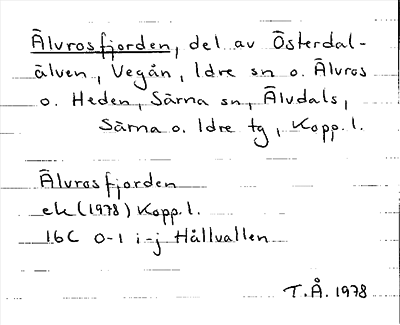 Älvrosfjorden, del av Österdal-
älven, Vegån, Idre sn o. Älvros
o. Heden, Särna sn, Älvdals,
Särna o. Idre tg, Kopp. l.
Älvrosfjorden
ek (1978) Kopp. l.
16C 0-1 i-j Hållvallen
T.Å. 1978